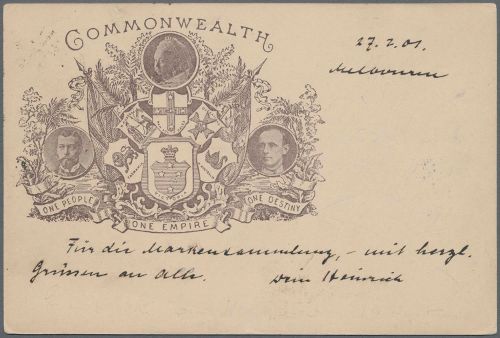 COMMONWEALTH
27.2.01.
Melbourne
ONE PEOPLE
ONE EMPIRE
ONE DESTINY
Für die Markensammlung, – mit herzl.
Grüssen an Alle. Dein Heinrich